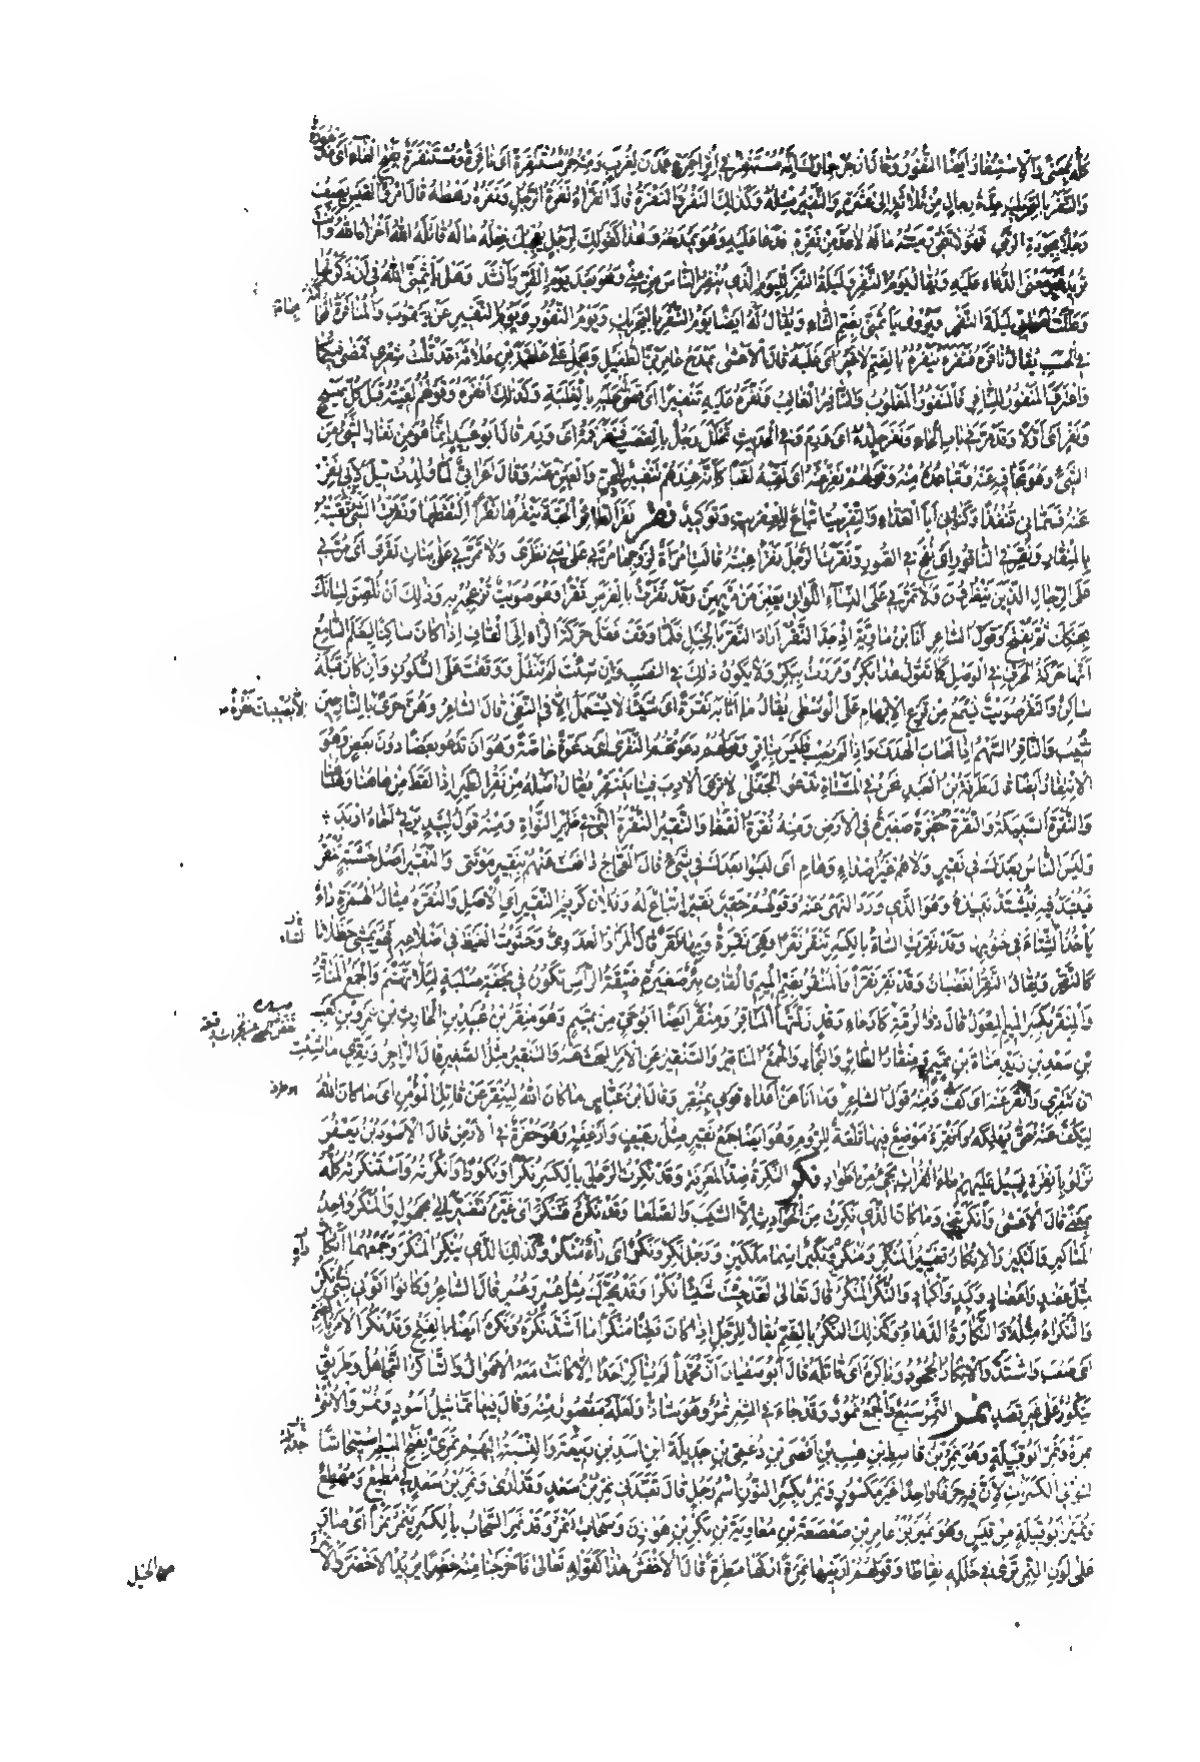 كله بمعنى والاستنفار أيضا النفور وقال ابن الأعرابي
والنفر بالتحريك عدة رجال من ثلاثة إلى عشرة والنفير مثله وكذلك النفر والنفرة قال الفراء نفرة الرجل ونفره رهطه قال امرؤ القيس يصف
رجلا بجودة الرمي فهو لا تنمي رميته ما له لا عد من نفره فدعا عليه وهو يمدحه وهذا كقولك لرجل يعجبك فعله ما له قاتله الله أخزاه الله وأنت
تريد غير معنى الدعاء عليه ويقال يوم النفر وليلة النفر لليوم الذي ينفر الناس من منى وهو بعد يوم القر وأنشد وهل يأثمني الله في أن ذكرتها
وعللت أصحابي بها ليلة النفر ويروى يأثمني بضم الثاء ويقال له أيضا يوم النفر بالتحريك ويوم النفور ويوم النفير عن يعقوب والمنافرة
في الحسب يقال نافره فنفره ينفره بالضم لا غير أي غلبه قال الأعشى يمدح عامر بن الطفيل ويحمل على علقمة بن علاثة قد قلت شعري فمضى فيكما
واعترف المنفور للنافر فالمنفور المغلوب والنافر الغالب ونفره عليه تنفيرا أي قضى له عليه بالغلبة وكذلك أنفره وقولهم لقيته قبل كل صيح
ونفر أي أولا وقد مر في باب الحاء ونفر جلده أي ورم وفي الحديث تخلل رجل بالقصب فنفر فمه أي ورم قال أبو عبيد إنما هو من نفار الشيء من
الشيء وهو تجافيه عنه وتباعده منه وقولهم نفر عنه أي لقبه لقبا كأنه عندهم تنفير للجن والعين عنه وقال أعرابي لما ولدت قيل لأبي نفر
عنه فسماني قنفذا وكناني أبا العداء والنفريت إتباع للعفريت وتوكيد نقر نقر الطائر الحبة ينقرها نقرا التقطها ونقرت الشيء ثقبته
بالمنقار ونقر في الناقور أي نفخ في الصور ونقرت الرجل نقرا عبته قالت امرأة لزوجها مر بي على بني نظرى ولا تمر بي على بنات نقرى أي مر بي
على الرجال الذين ينظرون ولا تمر بي على النساء اللواتي يعبن من مر بهن وقد نقرت بالفرس نقرا وهو صويت تزعجه به وذلك أن تلصق لسانك
بحنكك ثم تفتح وقول الشاعر أنا ابن ماوية إذ جد النقر أراد النقر بالخيل فلما وقف نقل حركة الراء إلى القاف إذ كان ساكنا ليعلم السامع
أنها حركة الحرف في الوصل كما تقول هذا بكر ومررت ببكر ولا يكون ذلك في النصب وإن شئت لم تنقل ووقفت على السكون وإن كان قبله
ساكن والنقر صويت يسمع من قرع الإبهام على الوسطى يقال ما أثابه نقرة أي شيئا لا يستعمل إلا في النفي قال الشاعر وهن حرى
والناقر السهم إذا أصاب الهدف وإذا لم يصب فليس بناقر وقولهم دعوتهم النقرى أي دعوة خاصة وهو أن تدعو بعضا دون بعض وهو
الانتقار أيضا قال طرفة بن العبد نحن في المشتاة ندعو الجفلى لا ترى الآدب فينا ينتقر يقال أصله من نقر الطير إذا لقط من هاهنا وهاهنا
والنقرة السبيكة والنقرة حفرة صغيرة في الأرض ومنه نقرة القفا والنقير النقرة التي في ظهر النواة ومنه قول لبيد يرثي أخاه أربد
وليس الناس بعدك في نقير ولا هم غير أصداء وهام أي ليسوا بعدك في شيء قال العجاج دافعت عنهم بنقير موتتي والنقير أصل خشبة ينقر
فينبذ فيه فيشتد نبيذه وهو الذي ورد النهي عنه وقولهم حقير نقير إتباع له وفلان كريم النقير أي الأصل والنقرة مثال الهمزة داء
يأخذ الشاة في جنوبها وقد نقرت الشاة بالكسر تنقر نقرا وهي نقرة وبها نقر قال المرار العدوي وحشوت الغيظ في أضلاعه فهو يمشي حظلانا
كالنقر ويقال النقر الغضبان وقد نقر نقرا والمنقر بضم الميم والقاف بئر صغيرة ضيقة الرأس تكون في نجفة صلبة لئلا تهشم والجمع المناقر
والمنقر بكسر الميم المعول قال ذو الرمة كأرحاء رقد زلمتها المناقر ومنقر أيضا أبو حي من تميم وهو منقر بن عبيد بن الحارث بن عمرو بن كعب
بن سعد بن زيد مناة بن تميم ومنقار الطائر والنجار والجمع المناقير والتنقير عن الأمر البحث عنه والتنقير مثل الصفير قال الراجز ونقري ما شئت
أن تنقري وأنقر عنه أي كف ومنه قول الشاعر وما أنا عن أعداء قومي بمنقر وقال ابن عباس ما كان الله لينقر عن قاتل المؤمن أي ما كان الله
ليكف عنه حتى يهلكه وأنقرة موضع فيها قلعة للروم وهو أيضا جمع نقير مثل رغيف وأرغفة وهو حفرة في الأرض قال الأسود بن يعفر
نزلوا بأنقرة يسيل عليهم ماء الفرات يجيء من أطواد نكر النكرة ضد المعرفة وقد نكرت الرجل بالكسر نكرا ونكورا وأنكرته واستنكرته كله
بمعنى قال الأعشى وأنكرتني وما كان الذي نكرت من الحوادث إلا الشيب والصلعا وقد نكره فتنكر أي غيره فتغير إلى مجهول والمنكر واحد
المناكير والنكير والإنكار تغيير المنكر ومنكر ونكير اسما ملكين ورجل نكر ونكر أي داه منكر وكذلك الذي ينكر المنكر وجمعهما أنكار
مثل عضد وأعضاد وكبد وأكباد والنكر المنكر قال تعالى لقد جئت شيئا نكرا وقد يحرك مثل عسر وعسر قال الشاعر وكانوا أتوني بشيء نكر
والنكراء مثله والنكارة الدهاء وكذلك النكر بالضم يقال للرجل إذا كان فطنا منكرا ما أشد نكره ونكره أيضا بالفتح وقد نكر الأمر بالضم
أي صعب واشتد والإنكار الجحود وناكره أي قاتله قال أبو سفيان إن محمدا لم يناكر أحدا إلا كانت معه الأهوال والتناكر التجاهل وطريق
ينكور على غير قصد نمر النمر سبع والجمع نمور وقد جاء في الشعر نمر وهو شاذ ولعله مقصور منه وقال فيها تماثيل أسود ونمر والأنثى
نمرة ونمر أبو قبيلة وهو نمر بن قاسط بن هنب بن أفصى بن دعمي بن جديلة بن أسد بن ربيعة والنسبة إليهم نمري بفتح الميم استيحاشا
لتوالي الكسرات لأن فيه حرفا واحدا غير مكسور ونمر بكسر النون اسم رجل قال تعبدني نمر بن سعد وقد أرى ونمر بن سعد لي مطيع ومهطع
ونمير أبو قبيلة من قيس وهو نمير بن عامر بن صعصعة بن معاوية بن بكر بن هوازن وسحاب نمر وقد نمر السحاب بالكسر ينمر نمرا أي صار
على لون النمر ترى في خلله نقاطا وقولهم أرنيها نمرة أركها مطرة قال الأخفش هذا كقوله تعالى فأخرجنا منه خضرا يريد الأخضر